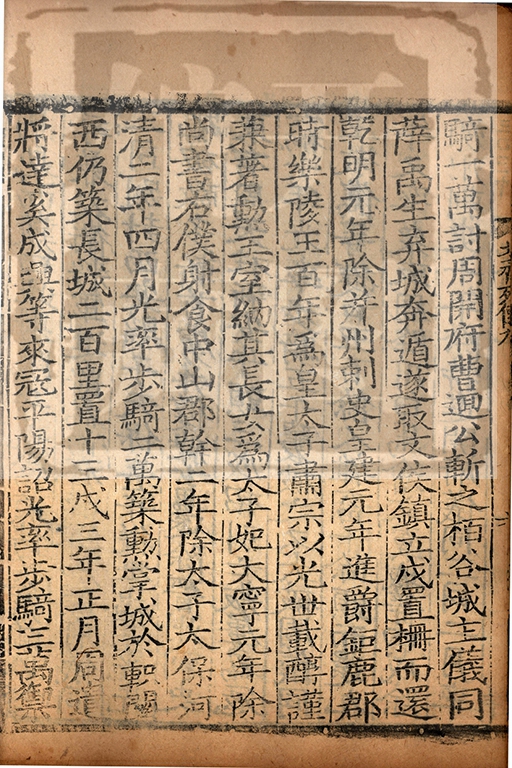 騎一萬討周開府曹迴公斬之栢谷城主儀同
薛禹生弃城奔遁遂取文侯鎮立戍置柵而還
乾明元年除并州刺史皇建元年進爵鉅鹿郡
時樂陵王百年爲皇太子肅宗以光世載醇謹
兼著勲王室納其長女爲太子妃大寧元年除
尚書右僕射食中山郡幹二年除太子太保河
清二年四月光率步騎二萬築勲掌城於軹關
西仍築長城二百里置十三戍三年正月周遣
將達奚成興等來寇平陽詔光率步騎三萬禦